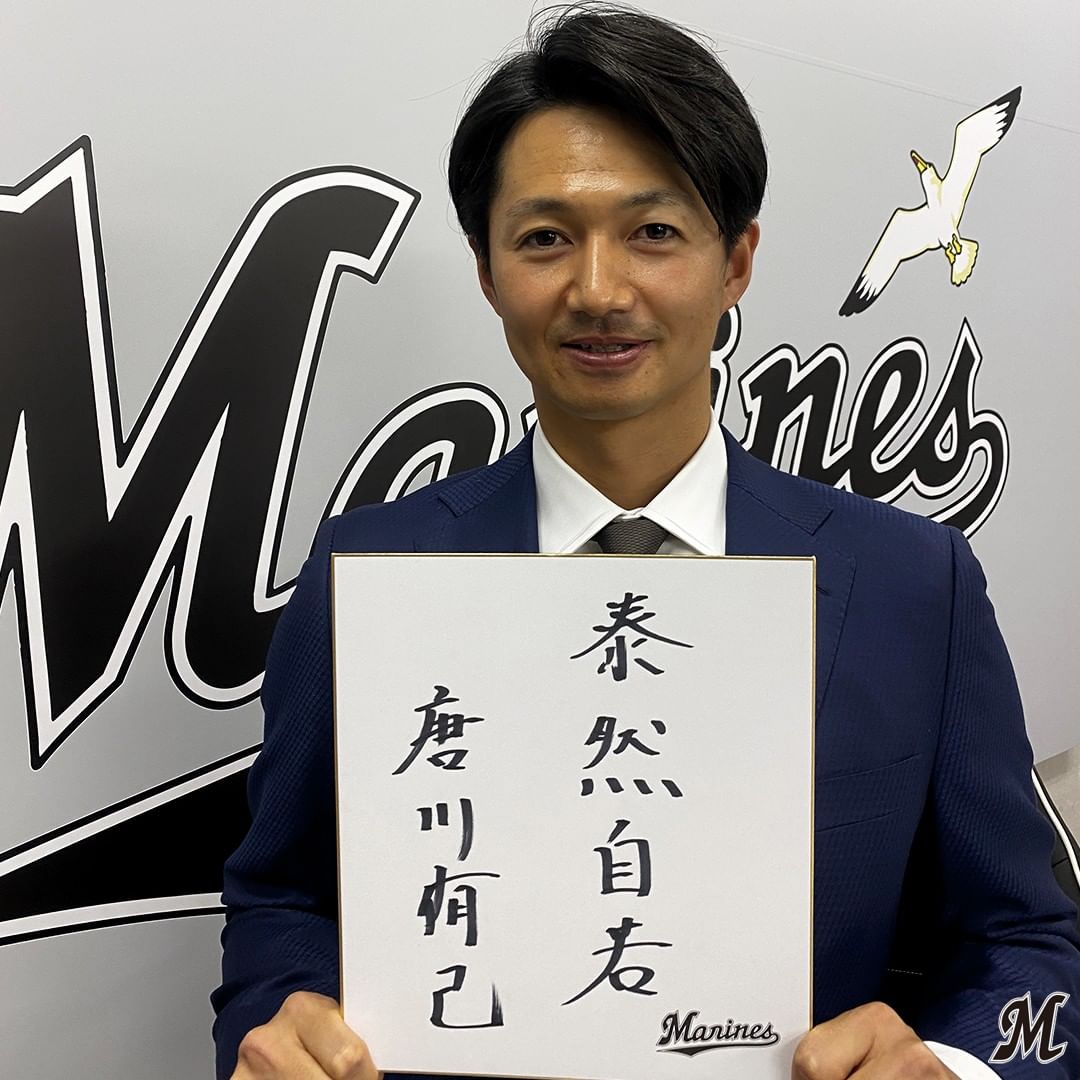 Marines
泰然自若
唐川侑己
Marines
M